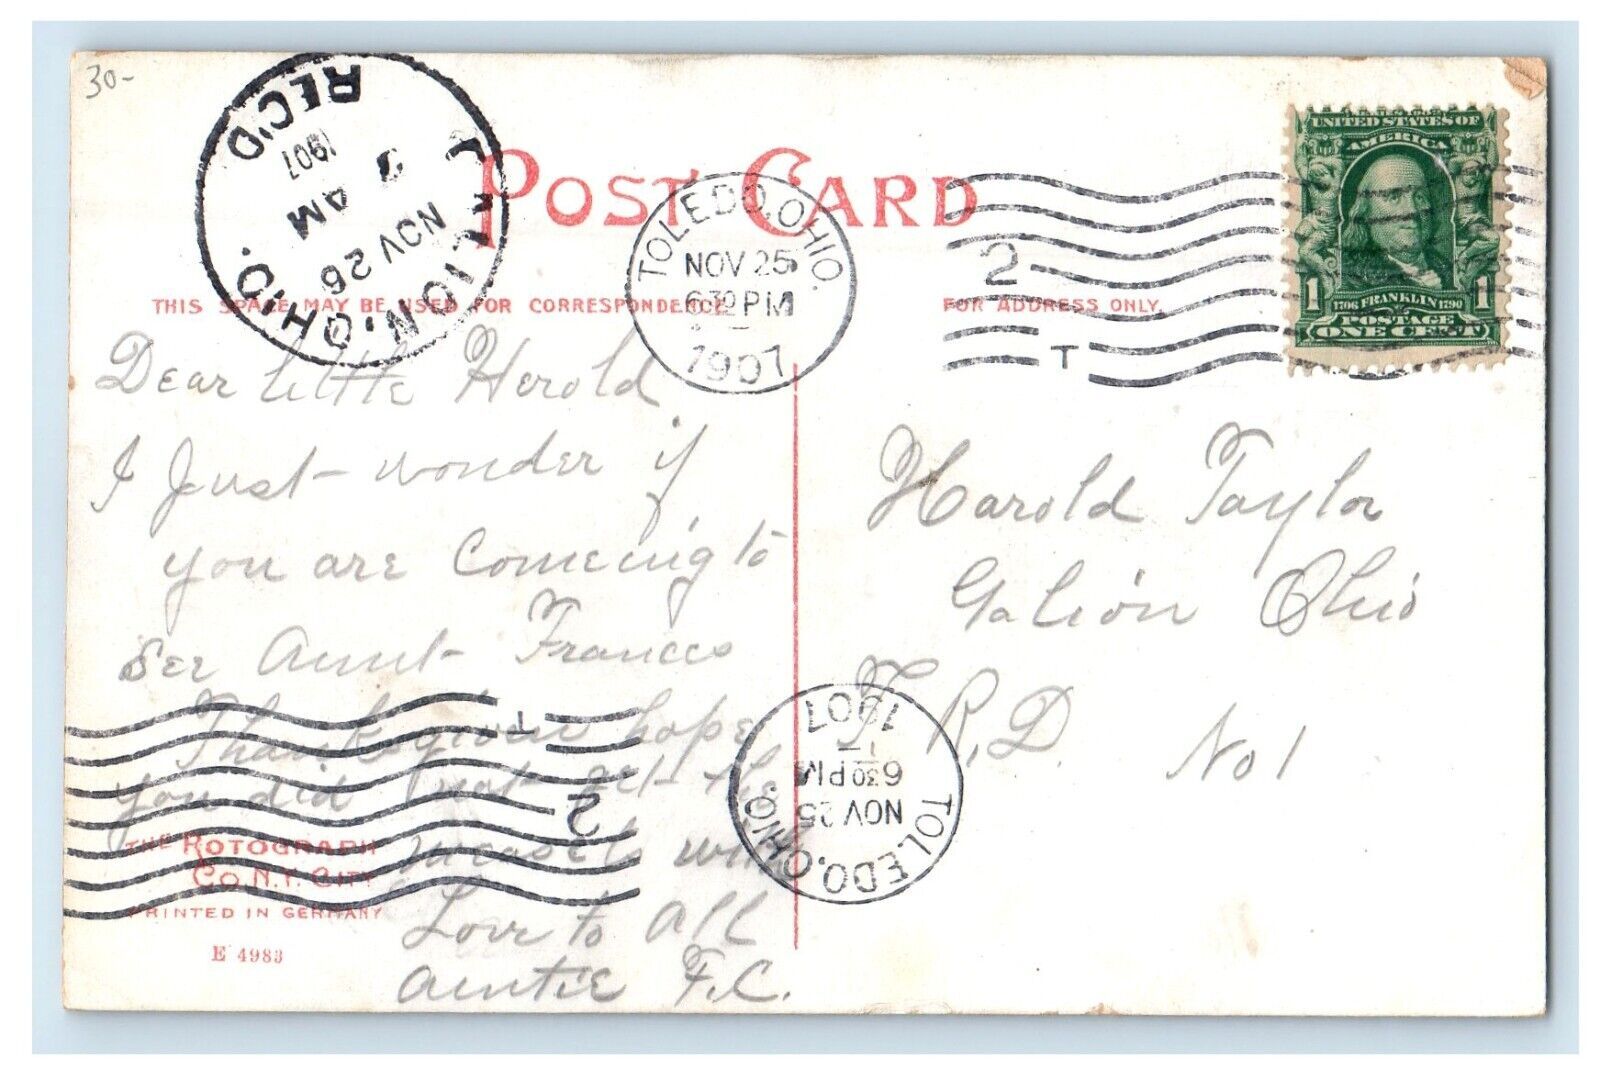 30-
GALION, OHIO.
NOV 26
7
AM
1907
REC'D
POST CARD
TOLEDO, OHIO.
NOV 25
630 PM
1907
2
T
UNITED STATES OF
AMERICA
1 1706 FRANKLIN 1790 1
POSTAGE
ONE CENT
THIS SPACE MAY BE USED FOR CORRESPONDENCE
FOR ADDRESS ONLY.
Dear little Herold
I Just wonder if
you are Comeing to
See Aunt Frances
Thanksgiven hope
you did not get the
measels with
Love to All
Auntie F.C.
Harold Taylor
Galion Ohio
F R.D.
No 1
T
2
TOLEDO, OHIO.
NOV 25
630 PM
1907
THE ROTOGRAPH
CO. N.Y. CITY
PRINTED IN GERMANY
E 4983